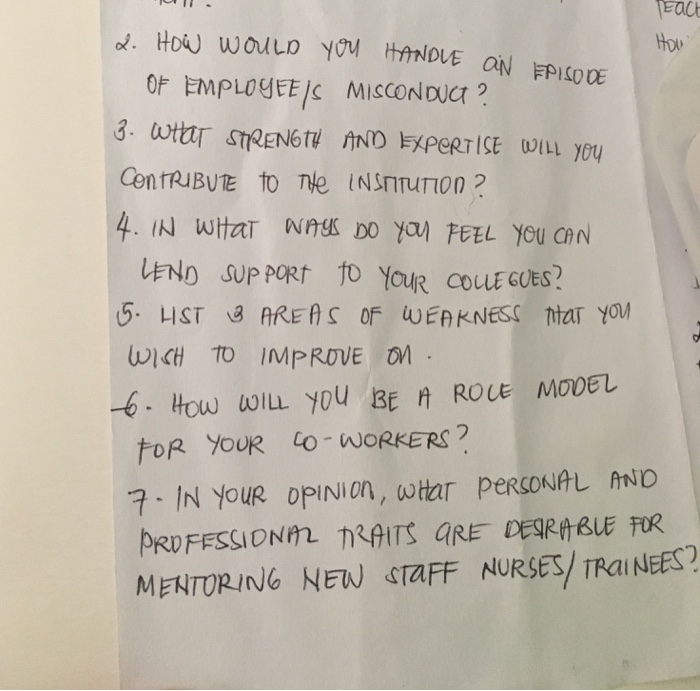 2. HOW WOULD YOU HANDLE AN EPISODE
OF EMPLOYEE/S MISCONDUCT?
3. WHAT STRENGTH AND EXPERTISE WILL YOU
CONTRIBUTE TO THE INSTITUTION?
4. IN WHAT WAYS DO YOU FEEL YOU CAN
LEND SUPPORT TO YOUR COLLEGUES?
5. LIST 3 AREAS OF WEAKNESS THAT YOU
WISH TO IMPROVE ON.
6. HOW WILL YOU BE A ROLE MODEL
FOR YOUR CO-WORKERS?
7- IN YOUR OPINION, WHAT PERSONAL AND
PROFESSIONAL TRAITS ARE DESIRABLE FOR
MENTORING NEW STAFF NURSES/TRAINEES?
TEACH
HOW